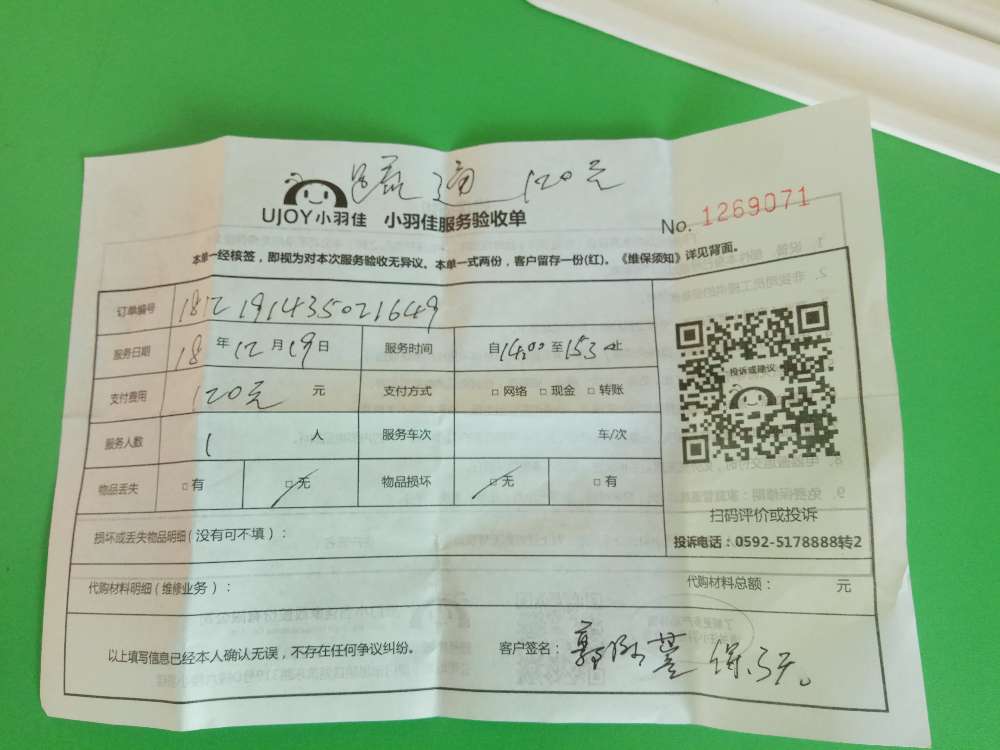 120元
UJOY小羽佳 小羽佳服务验收单
No. 1269071
本单一经核签，即视为对本次服务验收无异议。本单一式两份，客户留存一份(红)。《维保须知》详见背面。
订单编号 1812191435021649
服务日期 18 年 12 月 19 日 服务时间 自14:00 至 153 止
支付费用 120元 元 支付方式 □ 网络 □ 现金 □ 转账
服务人数 1 人 服务车次 车/次
物品丢失 □ 有 □ 无 物品损坏 □ 无 □ 有
投诉或建议
扫码评价或投诉
投诉电话：0592-5178888转2
损坏或丢失物品明细(没有可不填)：
代购材料明细(维修业务)： 代购材料总额： 元
以上填写信息已经本人确认无误，不存在任何争议纠纷。 客户签名： 保3天。